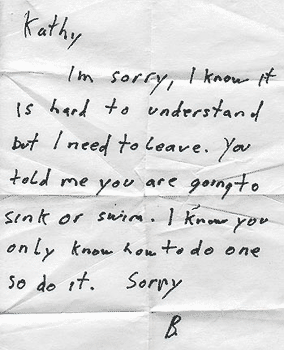 Kathy
Im sorry, I know it
is hard to understand
but I need to leave. You
told me you are going to
sink or swim. I know you
only know how to do one
so do it. Sorry
B.